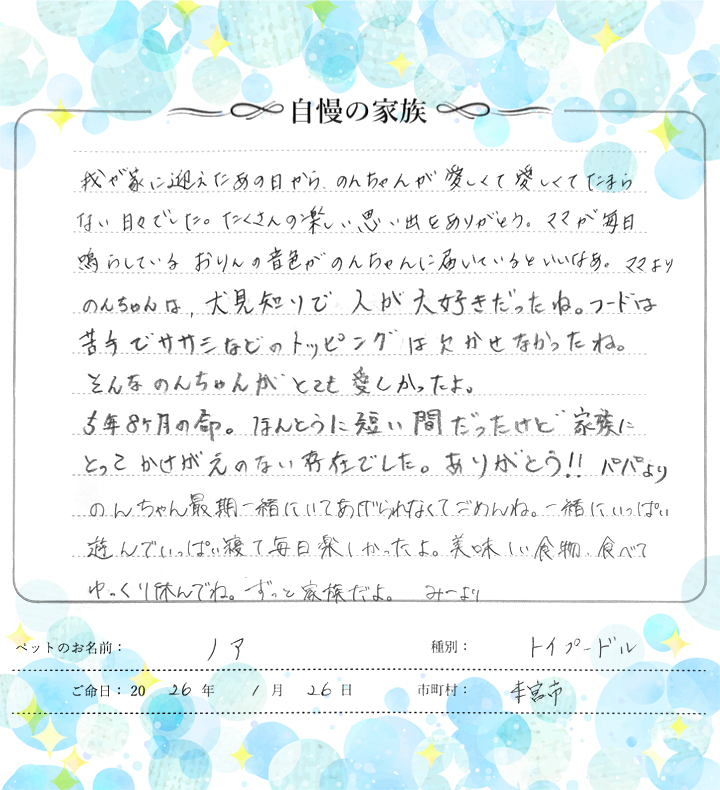 自慢の家族
我が家に迎えたあの日から、のんちゃんが愛しくて愛しくてたまら
ない日々でした。たくさんの楽しい思い出をありがとう。ママが毎日
鳴らしているおりんの音色がのんちゃんに届いているといいなあ。ママより
のんちゃんは、犬見知りで人が大好きだったね。フードは
苦手でササミなどのトッピングは欠かせなかったね。
そんなのんちゃんがとても愛しかったよ。
5年8ヶ月の命。ほんとうに短い間だったけど家族に
とってかけがえのない存在でした。ありがとう!! パパより
のんちゃん最期一緒にいてあげられなくてごめんね。一緒にいっぱい
遊んでいっぱい寝て毎日楽しかったよ。美味しい食物、食べて
ゆっくり休んでね。ずっと家族だよ。 みーより
ペットのお名前： ノア 種別： トイプードル
ご命日：2026年1月26日 市町村： 本宮市